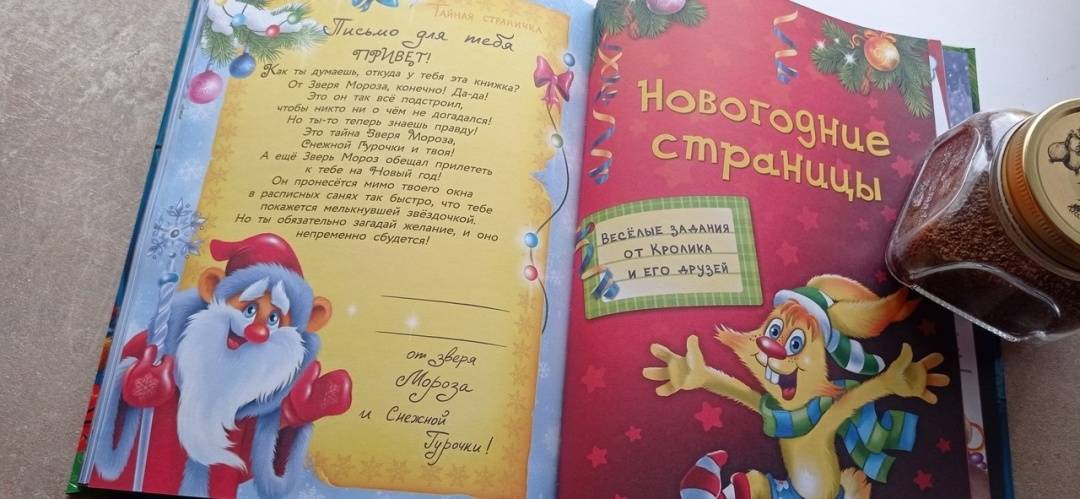 Тайная страничка
Письмо для тебя
ПРИВЕТ!
Как ты думаешь, откуда у тебя эта книжка?
От Зверя Мороза, конечно! Да-да!
Это он так всё подстроил,
чтобы никто ни о чём не догадался!
Но ты-то теперь знаешь правду!
Это тайна Зверя Мороза,
Снежной Гурочки и твоя!
А ещё Зверь Мороз обещал прилететь
к тебе на Новый год!
Он пронесётся мимо твоего окна
в расписных санях так быстро, что тебе
покажется мелькнувшей звёздочкой.
Но ты обязательно загадай желание, и оно
непременно сбудется!
от зверя
Мороза
и Снежной
Гурочки!
Новогодние
страницы
Весёлые задания
от Кролика
и его друзей